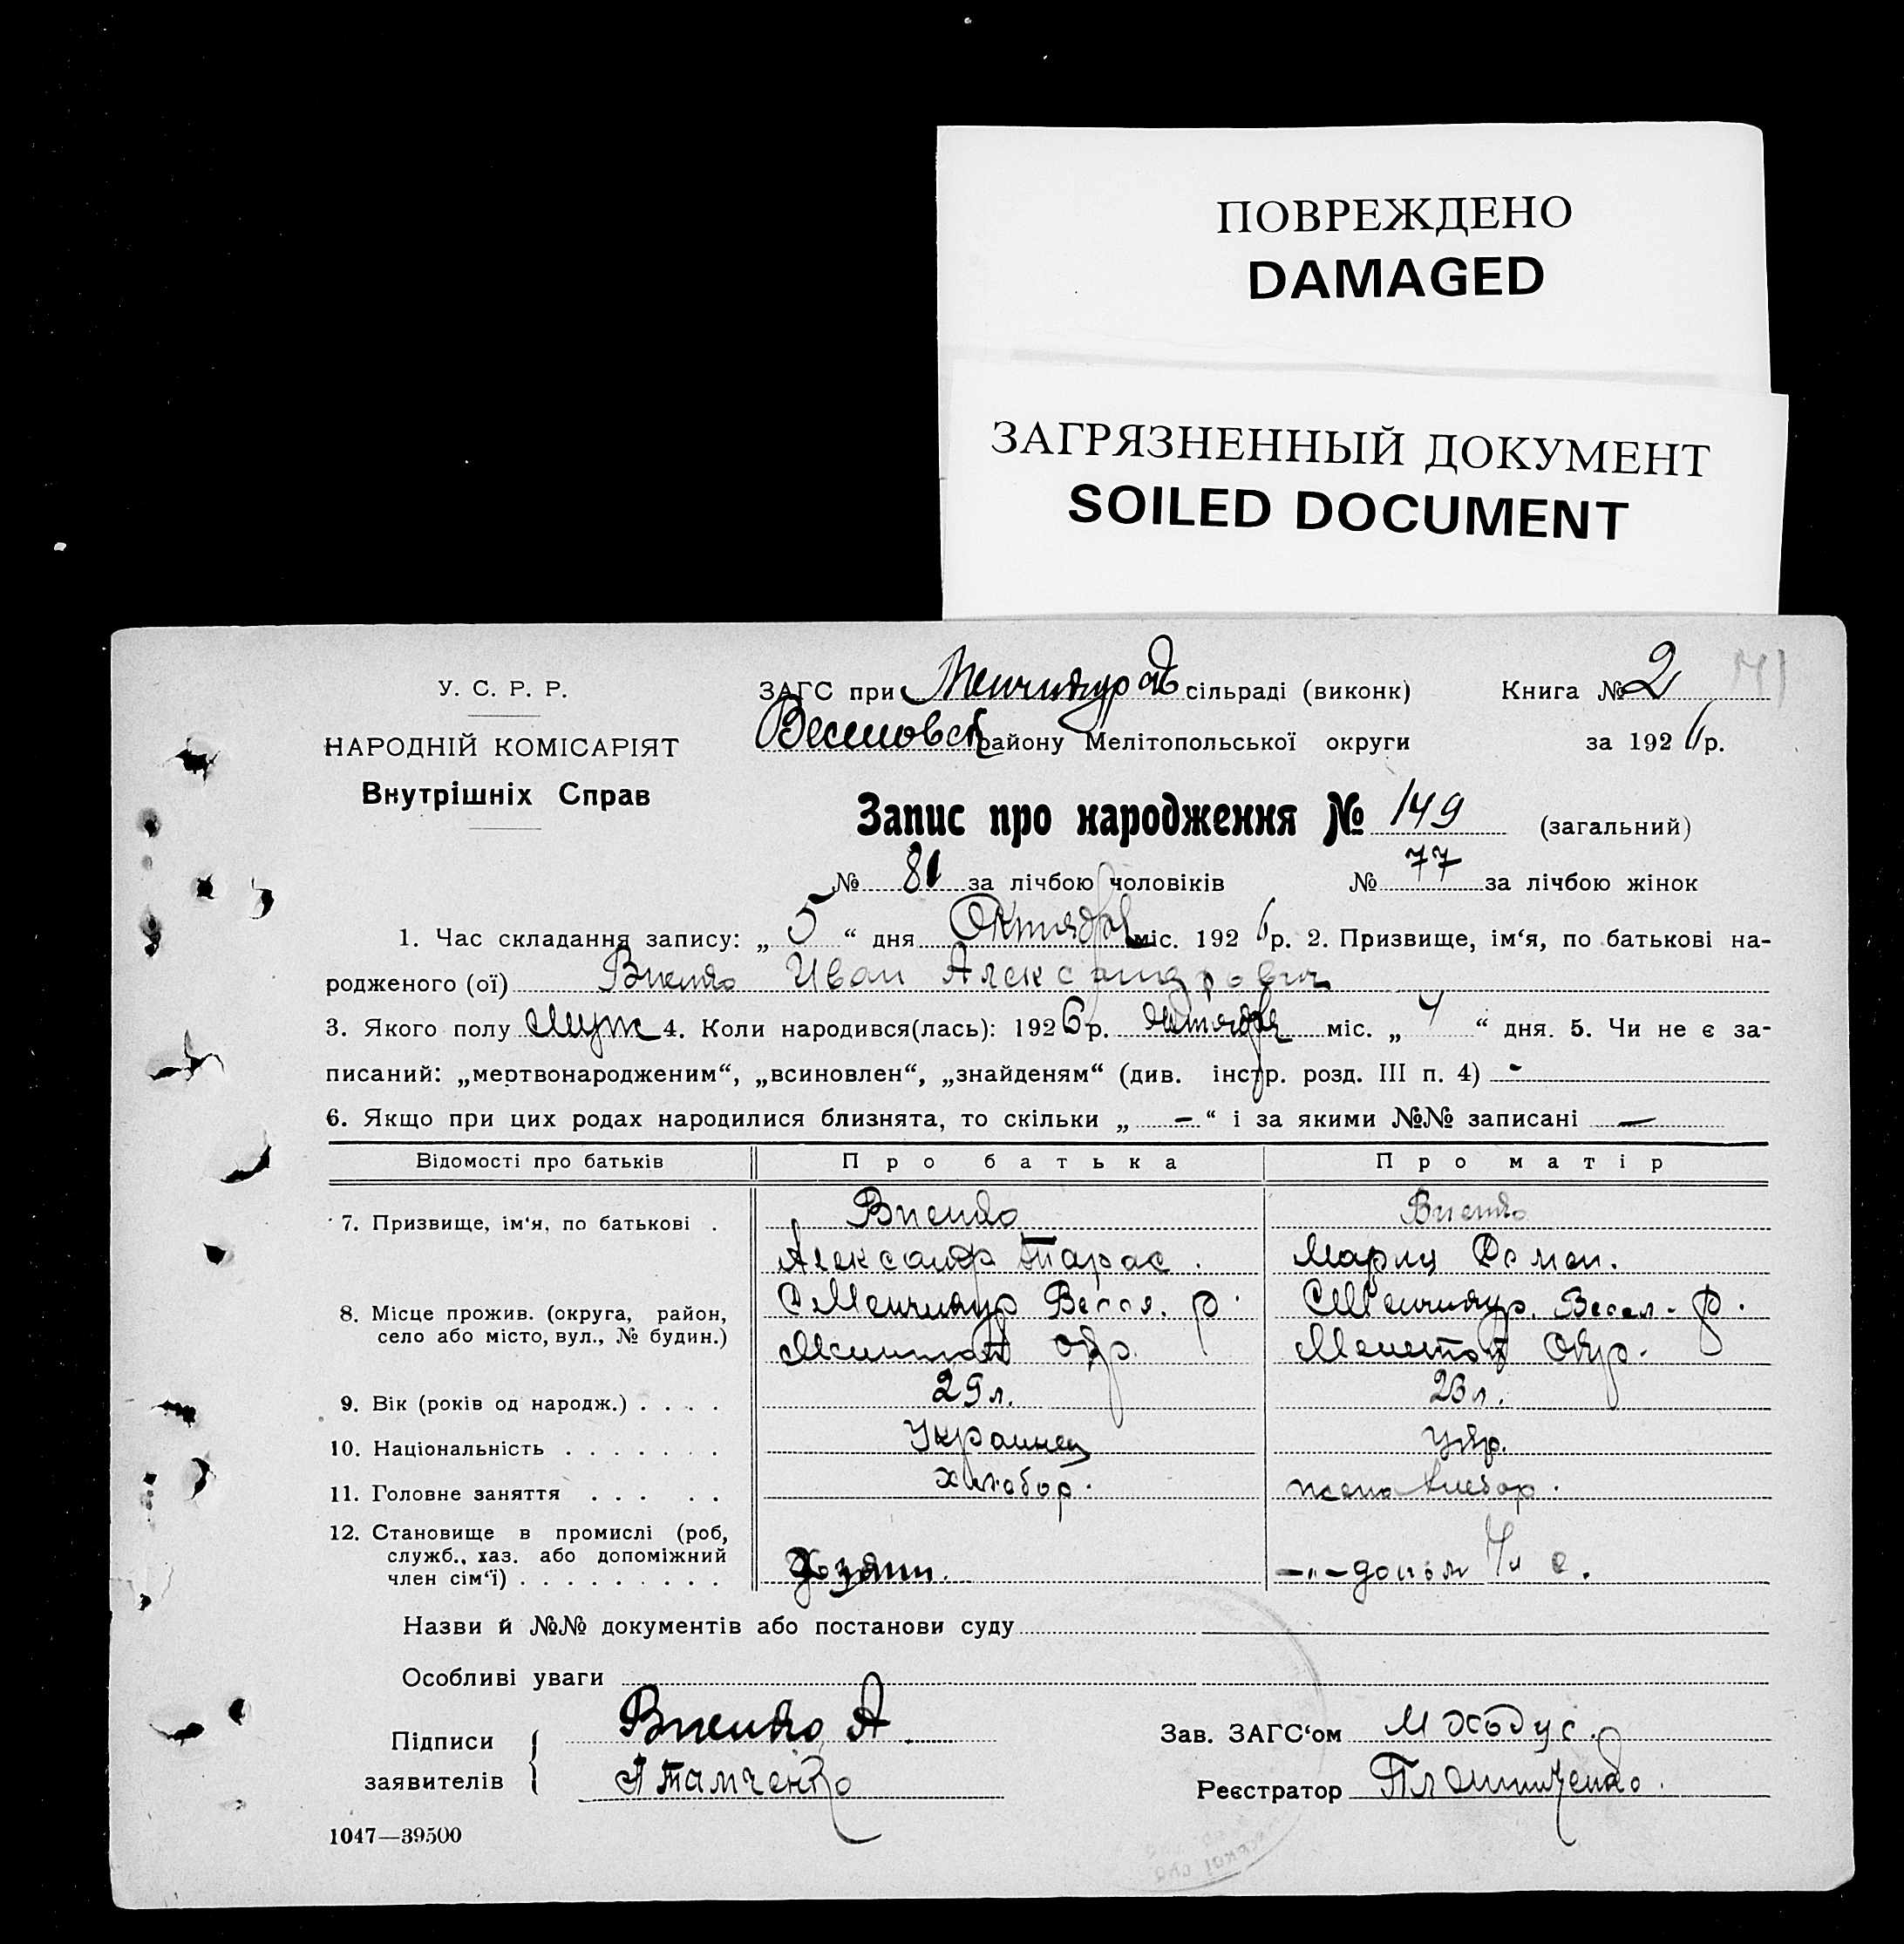 ПОВРЕЖДЕНО
DAMAGED
ЗАГРЯЗНЕННЫЙ ДОКУМЕНТ
SOILED DOCUMENT
У. С. Р. Р.
НАРОДНІЙ КОМІСАРІЯТ
Внутрішніх Справ
ЗАГС при Менчикур сільраді (виконк) Книга № 2
Веселовск району Мелітопольської округи за 1926 р.
Запис про народження № 149 (загальний)
№ 81 за лічбою чоловіків № 77 за лічбою жінок
1. Час складання запису: „ 5 “ дня Октября міс. 1926 р. 2. Призвище, ім‘я, по батькові на-
родженого (ої) Иван Александрович
3. Якого полу Муж 4. Коли народився(лась): 1926 р. октября міс. „ 4 “ дня. 5. Чи не є за-
писаний: „мертвонародженим“, „всиновлен“, „знайденям“ (див. інстр. розд. III п. 4) -
6. Якщо при цих родах народилися близнята, то скільки „ - “ і за якими №№ записані —
Відомості про батьків Про батька Про матір
7. Призвище, ім‘я, по батькові .
Александр Тарас. Мария
8. Місце прожив. (округа, район, село або місто, вул., № будин.)
С Менчикур Весел. р. С Менчикур. Весел. р.
Мелитоп Окр. Мелитоп Окр.
9. Вік (років од народж.) . . . . 29 л. 23 л.
10. Національність . . . . . . . Украинец укр.
11. Головне заняття . . . . . хлебор. жена хлебор.
12. Становище в промислі (роб, служб., хаз. або допоміжний член сім‘ї) . . . . . . . . . Хозяин. -„-
Назви й №№ документів або постанови суду
Особливі уваги
Підписи заявителів
А
Зав. ЗАГС‘ом М Ходус.
Реєстратор
1047—39500